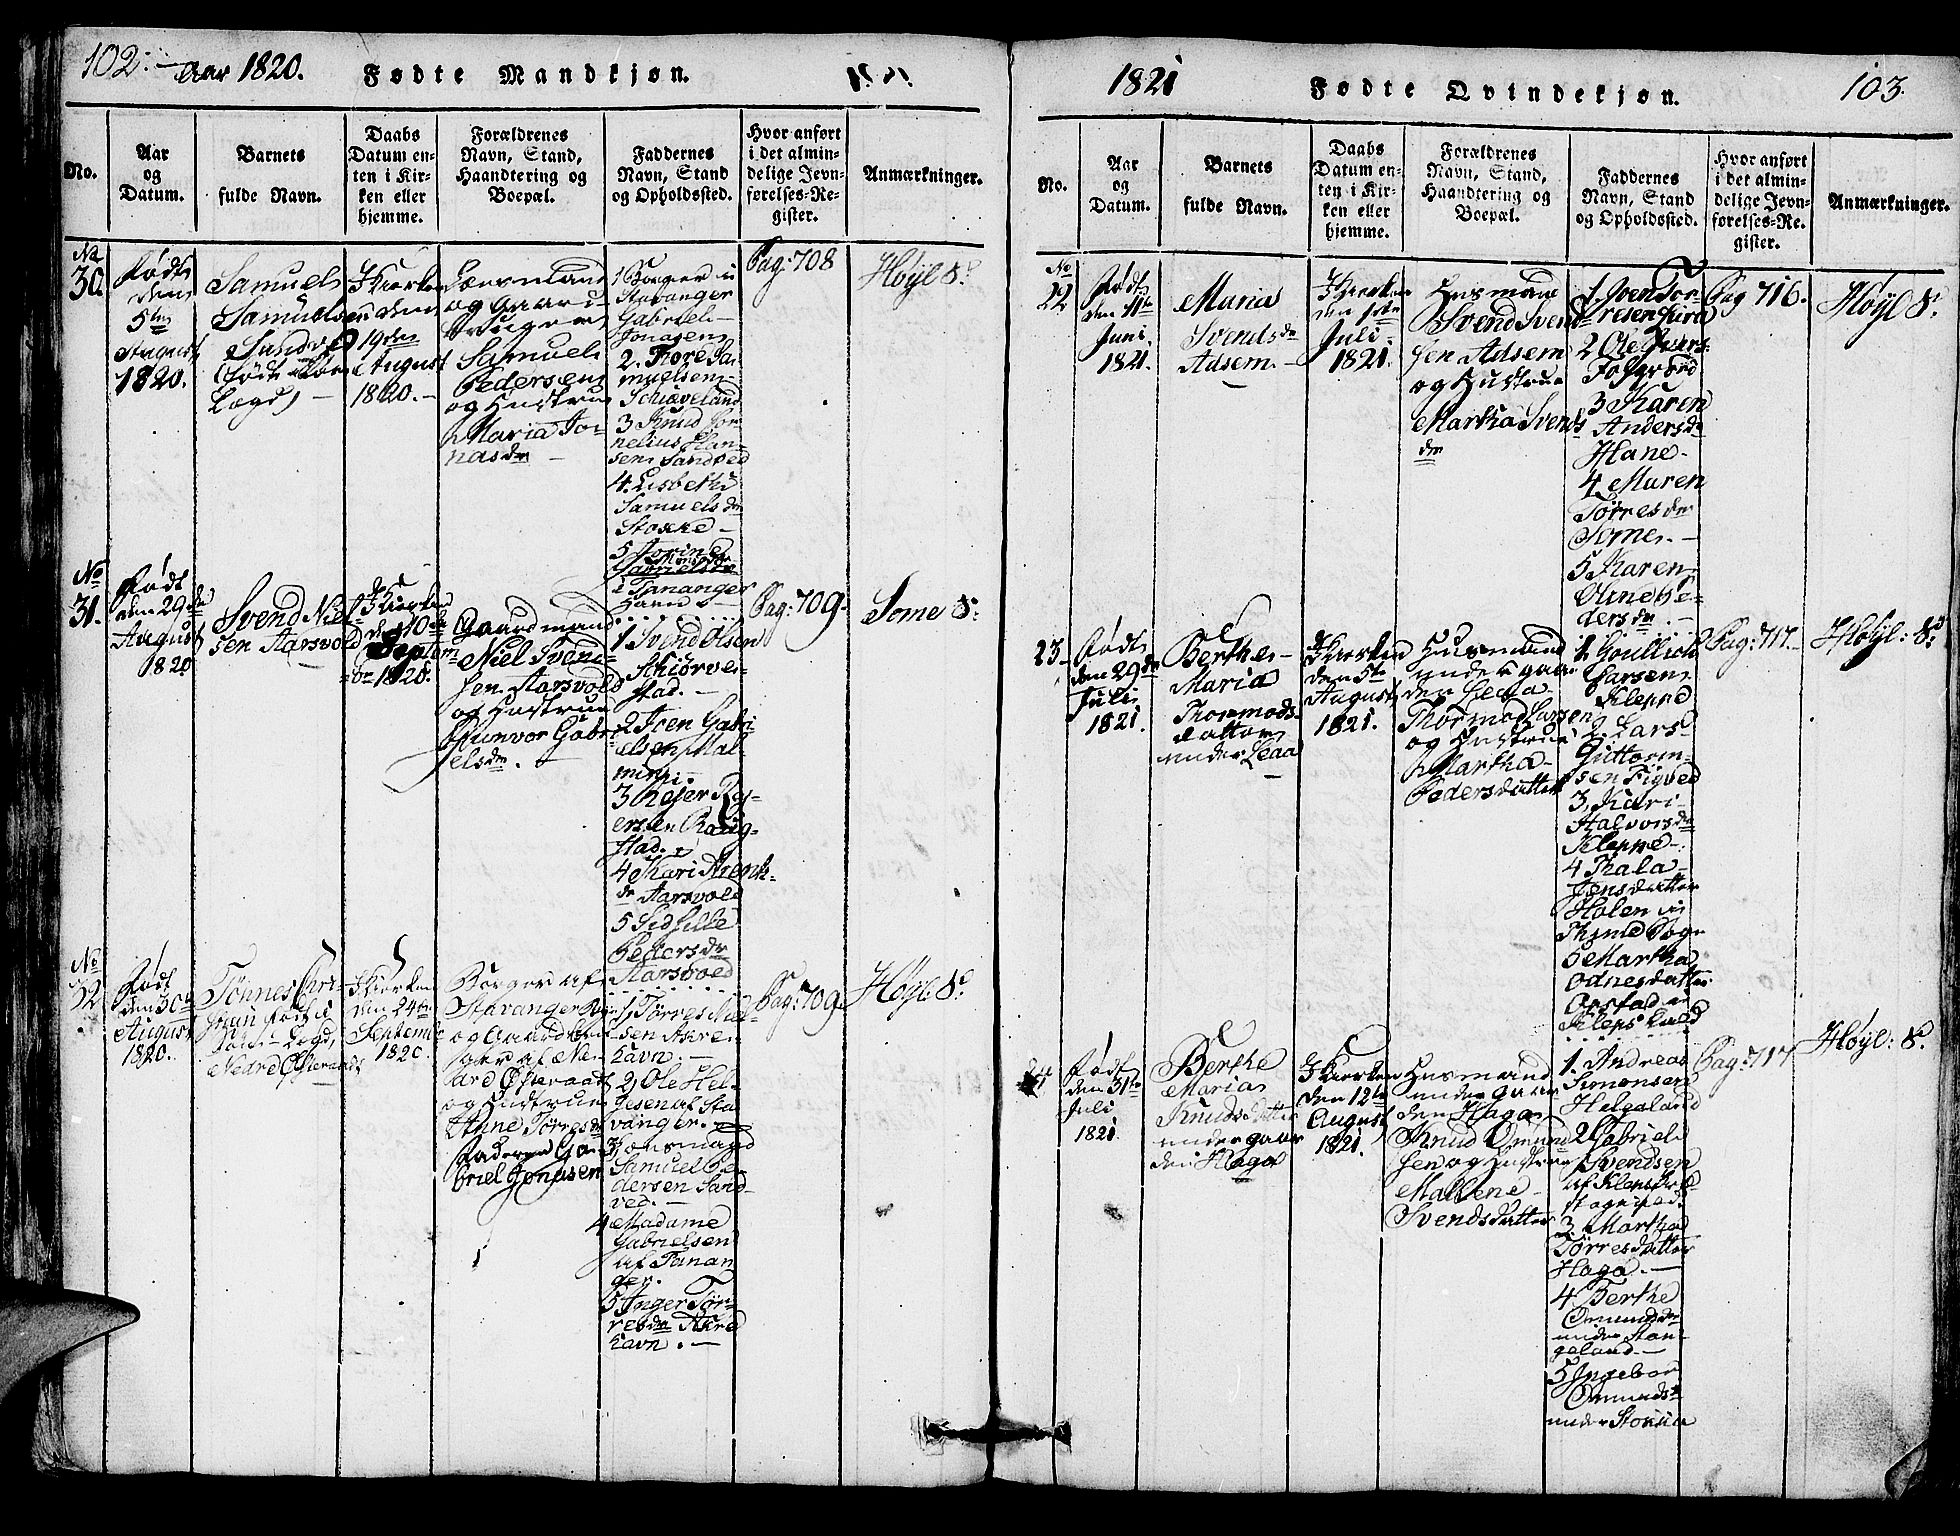 102.
Aar 1820.
Fødte Mandkjøn.
No.
Aar
og
Datum.
Barnets
fulde Navn.
Daabs
Datum en-
ten i Kir-
ken eller
hjemme.
Forældrenes
Navn, Stand,
Haandtering og
Boepæl.
Faddernes
Navn, Stand
og Opholdssted.
Hvor anført
i det almin-
delige Jevn-
førelses-Re-
gister.
Anmærkninger.
No
30.
Født
den
5te
August
1820.
Samuel
Samuelsen
Sandved
Lægd)
I Kierken
den
19den
August
1820.
og Gaard
Samuel
Pedersen
og Hustrue
Maria Jo-
nasdr
1 Borger i
Stavanger
Gabriel
Jonasen
2. Tore Sa-
muelsen
Schiæveland
3 Knud Cor-
nelius Han-
sen Sandved
4. Lisbeth
Samuelsdr
Stokke
5 Torine
i Tananger
Havn
Pag: 708
Høyl. S.
No
31.
Født
den 29de
August
1820
Svend Niel-
sen Aarsvold
I Kierken
den 10de
Septem-
ber 1820.
Gaardmand
Niel Svend-
sen Aarsvold
og Hustrue
Gunvor Gabri-
elsdr.
1. Svend Olsen
Schiørve-
stad.
2. Iven Gabri-
elsen Mal-
min.
3 Reier Rei-
ersen Raug-
stad.
4 Kari Henrik-
dr Aarsvold
5 Sidsille
Pedersdr
Aarsvold
Pag: 709.
Some S.
No
32
Født
den 30te
August
1820.
Tønnes Chri-
stian født i
Lægd,
Nedre Østeraadt
I Kierken
den 24de
Septembr
1820.
Borger af
Stavanger By
og Gaardbru-
ger af Ne-
dre Østeraadt
og Hustrue
Anne Tørresdr
Faderen Ga-
briel Jonasen
1, Tørres Niel-
sen Akre-
havn.
2, Ole Hel-
gesen af Sta-
vanger.
3 Lænsmand
Samuel Pe-
dersen Sand-
ved.
4 Madame
Gabrielsen
af Tanan-
ger.
5 Inger Tør-
resdr Akre
havn.
Pag: 709
Høyl: S.
1821
Fødte Qvindekjøn.
103.
No.
Aar
og
Datum.
Barnets
fulde Navn.
Daabs
Datum en-
ten i Kir-
ken eller
hjemme.
Forældrenes
Navn, Stand,
Haandtering og
Boepæl.
Faddernes
Navn, Stand
og Opholdssted.
Hvor anført
i det almin-
delige Jevn-
førelses-Re-
gister.
Anmærkninger.
No
22
Født
den 11te
Juni
1821.
Maria
Svendsdr
Adsem
I Kierken
den 1ste
Juli
1821.
Husmand
Svend Svend-
sen Adsem
og Hustrue
Martha Svends
dr
1. Svend Tor-
resen Lura
2 Ole Ivers.
Folqvord
3 Karen
Andersdr
Hane
4 Maren
Tørresdr
Some
5 Karen
Oline Pe-
dersdr.
Pag 716.
Høyl S.
23
Født
den 29de
Juli
1821.
Berthe
Maria
Thormods-
datter
under Leaa
I Kierken
den 5te
August
1821.
Husmand
under Gaar-
den Leaa
Thormod Larsen
og Hustrue
Martha
Pedersdatter
1. Goullich
Larsen
Kleppe
2. Lars
Guttorm-
sen Figved
3, Kari
Halvorsdr
Kleppe
4 Thala
Jensdatter
Holen i
Thime Sogn
5 Martha
Odnesdatter
Orstad i
Kleps Sogn
Pag: 717.
Høyl: S.
24
Født
den 31te
Juli
1821.
Berthe
Maria
Knudsdatter
under Gaar
den Haga
I Kierken
den 12te
August
1821.
Husmand
under Gaar
den Haga
Knud Omund
sen og Hustrue
Mallene
Svendsdatter
1. Andreas
Simonsen
Helgeland
2 Gabriel
Svendsen
af Kleps
3. Martha
Tørresdatter
Haga.
4 Berthe
Omundsdr
under Stan-
geland
5 Ingebor
Omundsdr
under Stokka
Pag: 717
Høyl: S.